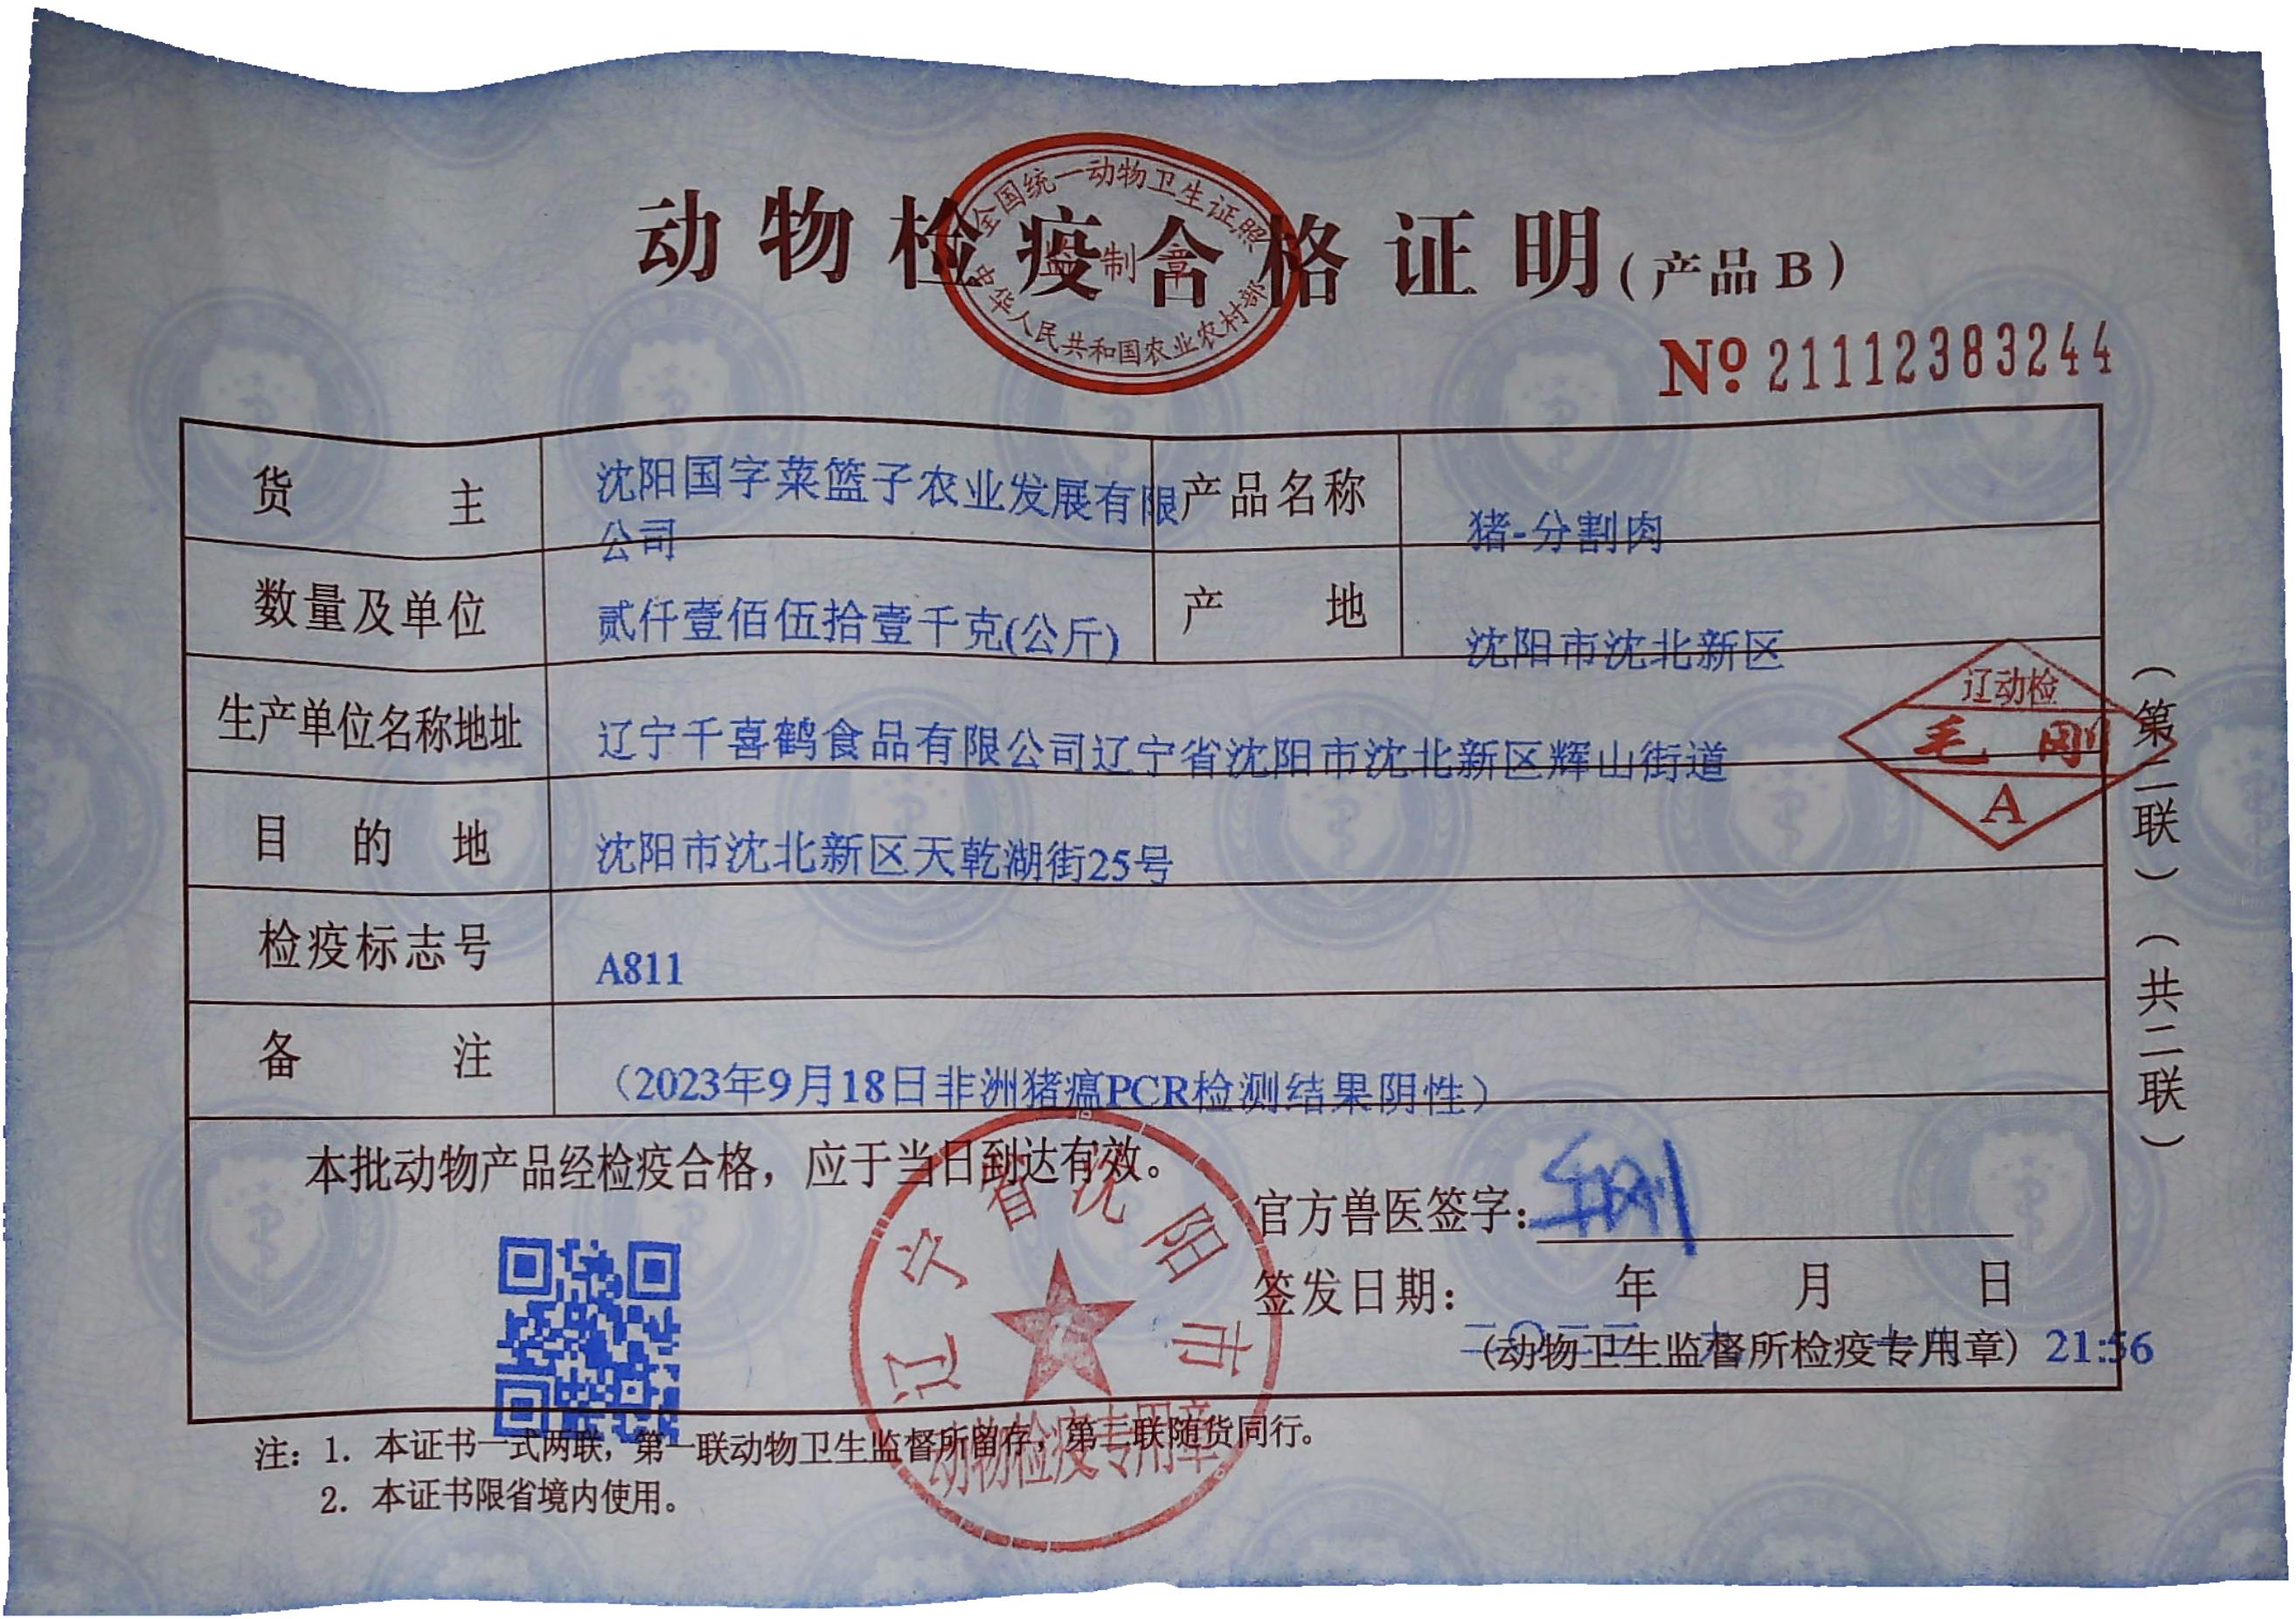 动物检疫合格证明(产品B)
全国统一动物卫生证照
监制章
中华人民共和国农业农村部
№ 21112383244
货主 沈阳国字菜篮子农业发展有限公司 产品名称 猪-分割肉
数量及单位 贰仟壹佰伍拾壹千克(公斤) 产地 沈阳市沈北新区
生产单位名称地址 辽宁千喜鹤食品有限公司辽宁省沈阳市沈北新区辉山街道
辽动检
毛刚
A
目的地 沈阳市沈北新区天乾湖街25号
检疫标志号 A811
备注 （2023年9月18日非洲猪瘟PCR检测结果阴性）
本批动物产品经检疫合格，应于当日到达有效。
官方兽医签字：毛刚
签发日期： 年 月 日
(动物卫生监督所检疫专用章) 21:56
辽宁省沈阳市
动物检疫专用章
注：1. 本证书一式两联，第一联动物卫生监督所留存，第二联随货同行。
2. 本证书限省境内使用。
（第二联）（共二联）